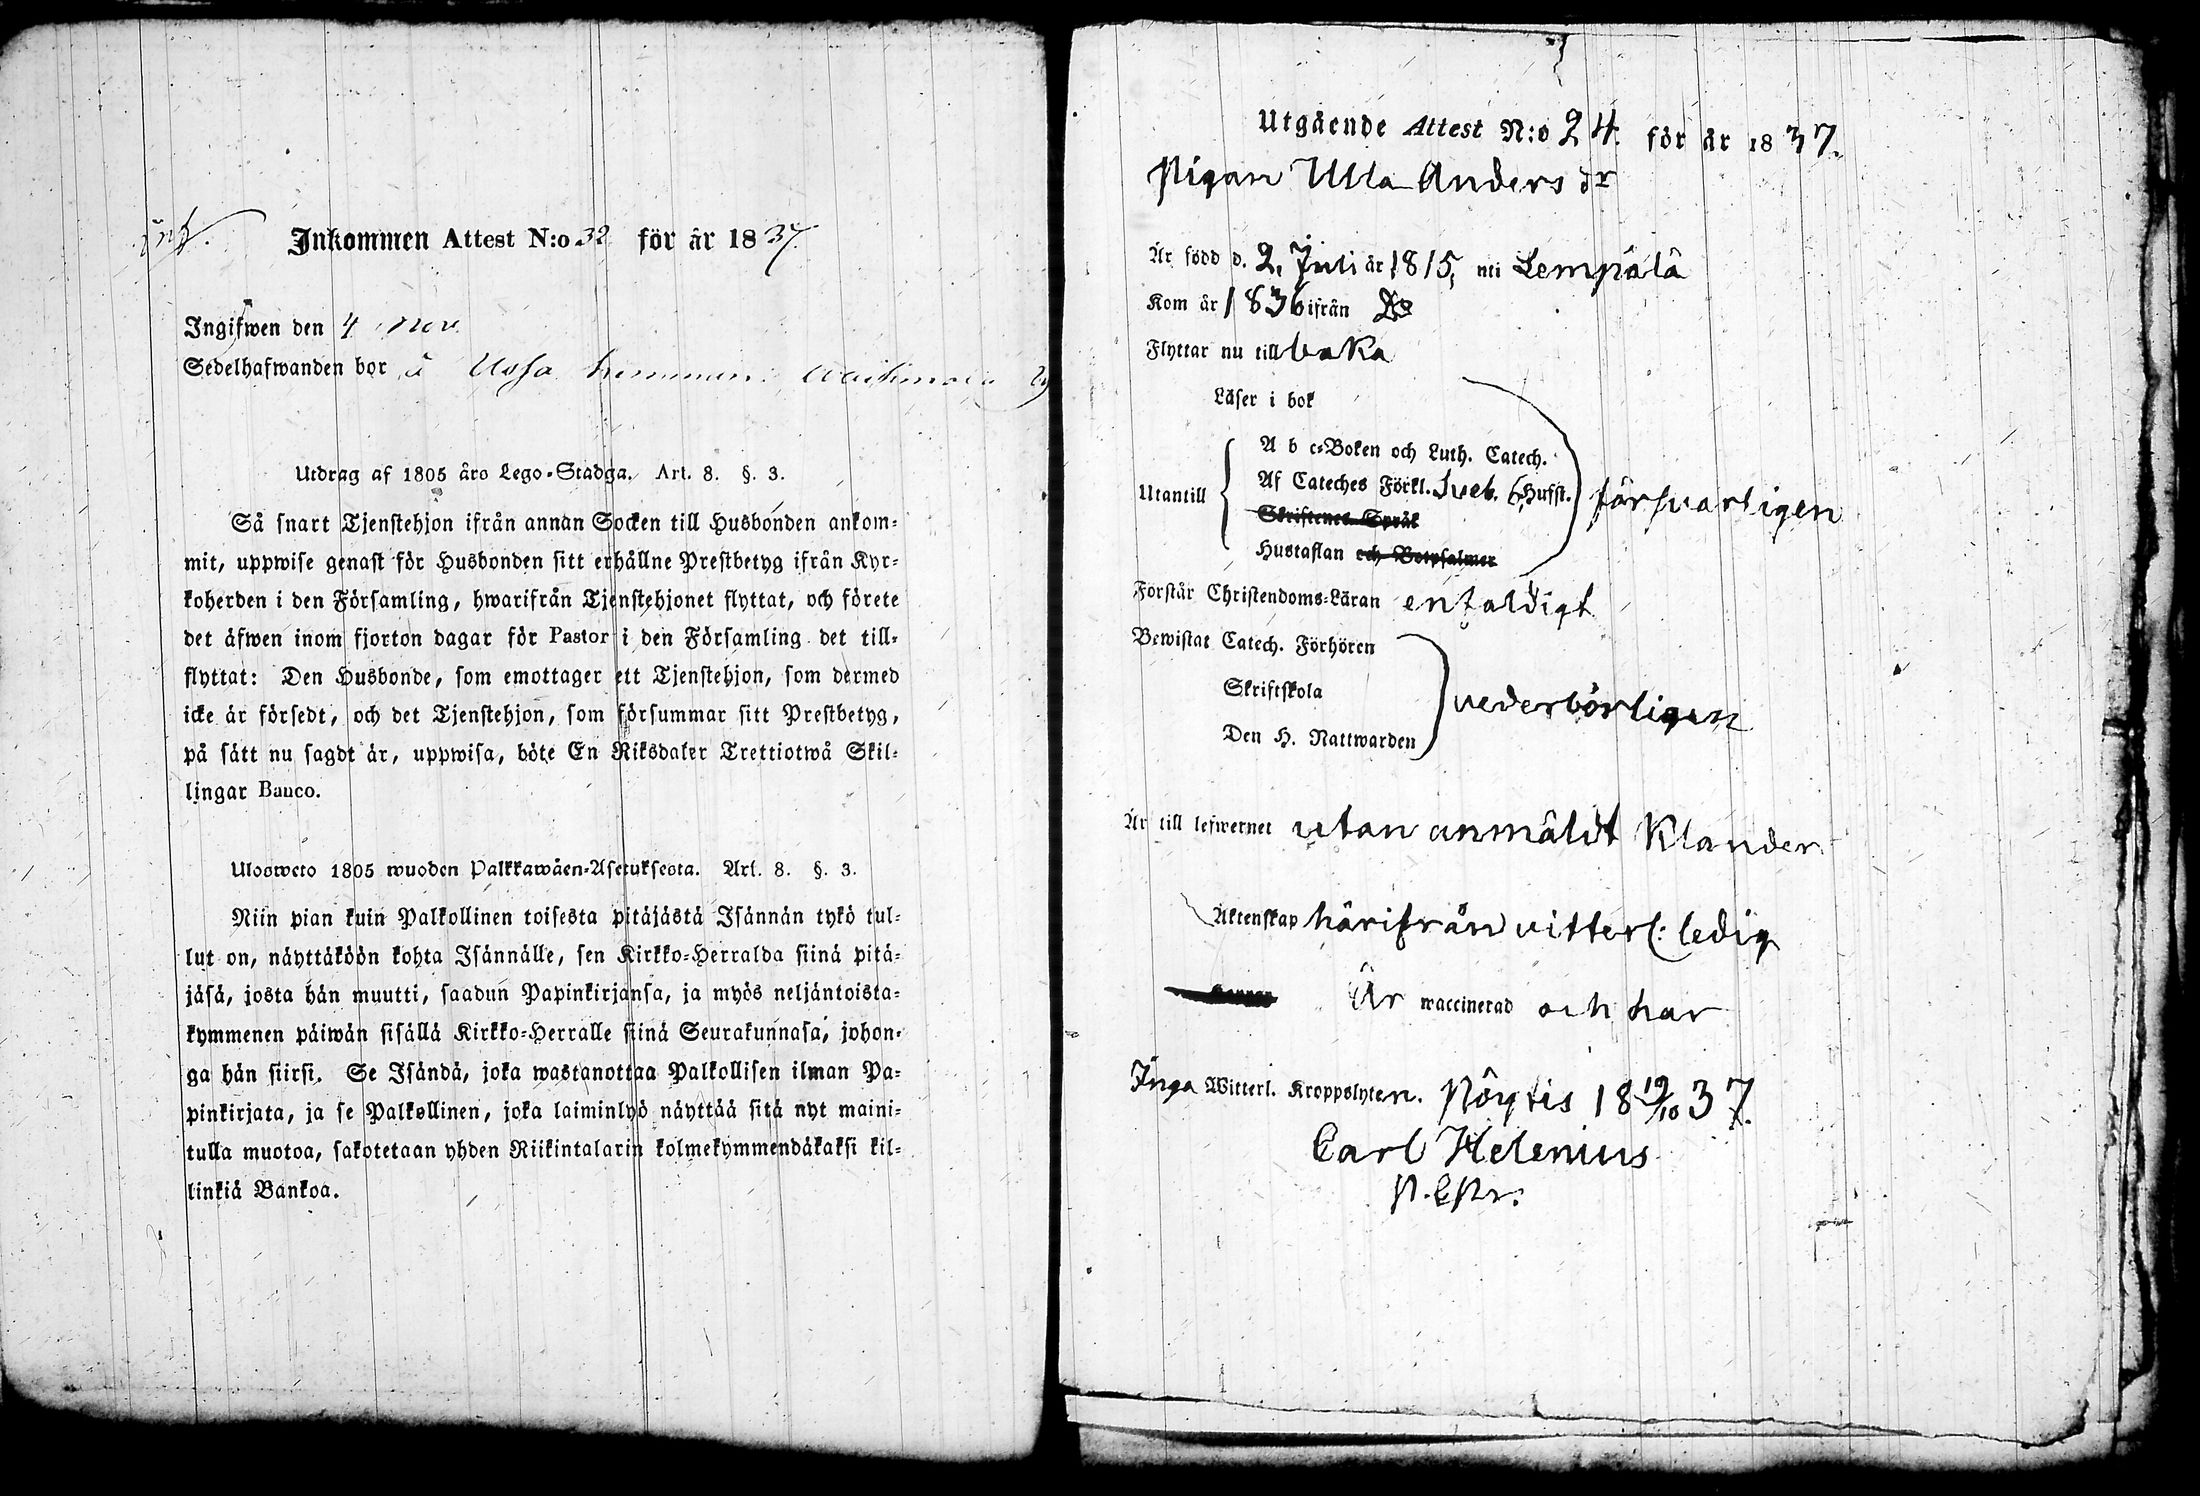 Inkommen Attest N:o 32 för år 1837
Ingifwen den 4 Nov
Sedelhafwanden bor å Ussa hemman
Utdrag af 1805 års Lego-Stadga. Art. 8. §. 3.
Så snart Tjenstehjon ifrån annan Socken till Husbonden ankom-
mit, uppwise genast för Husbonden sitt erhållne Prestbetyg ifrån Kyr-
koherden i den Församling, hwarifrån Tjenstehjonet flyttat, och förete
det äfwen inom fjorton dagar för Pastor i den Församling det till-
flyttat: Den Husbonde, som emottager ett Tjenstehjon, som dermed
icke är försedt, och det Tjenstehjon, som försummar sitt Prestbetyg,
på sätt nu sagdt är, uppwisa, böte En Riksdaler Trettiotwå Skil-
lingar Banco.
Ulosweto 1805 wuoden Palkkawäen-Asetuksesta. Art. 8. §. 3.
Niin pian kuin Palkollinen toisesta pitäjästä Isännän tykö tul-
lut on, näyttäköön kohta Isännälle, sen Kirkko-Herralda siinä pitä-
jäsä, josta hän muutti, saadun Papinkirjansa, ja myös neljäntoista-
kymmenen päiwän sisällä Kirkko-Herralle siinä Seurakunnasa, johon-
ga hän siirsi. Se Isändä, joka wastanottaa Palkollisen ilman Pa-
pinkirjata, ja se Palkollinen, joka laiminlyö näyttää sitä nyt maini-
tulla muotoa, sakotetaan yhden Riikintalarin kolmekymmendäkaksi kil-
linkiä Bankoa.
Utgående Attest N:o 24. för år 1837.
Pigan Ulla Anders dr
Är född d. 2. Juli år 1815, uti Lempälä
Kom år 1836 ifrån Do
Flyttar nu tillbaka
Läser i bok
A b c-Boken och Luth. Catech.
Utantill Af Cateches Förkl. Sveb. 6, Hufst. försvarligen
Skriftenes Språk
Hustaflan och Botpsalmer
Förstår Christendoms-Läran enfaldigt
Bewistat Catech. Förhören
Skriftskola vederbörligen
Den H. Nattwarden
Är till lefwernet utan anmäldt Klander
Äktenskap härifrån vitterl: ledig
Är waccinerad och har
Inga Witterl. Kroppslyten. Pöytis 18 19/10 37.
Carl Helenius